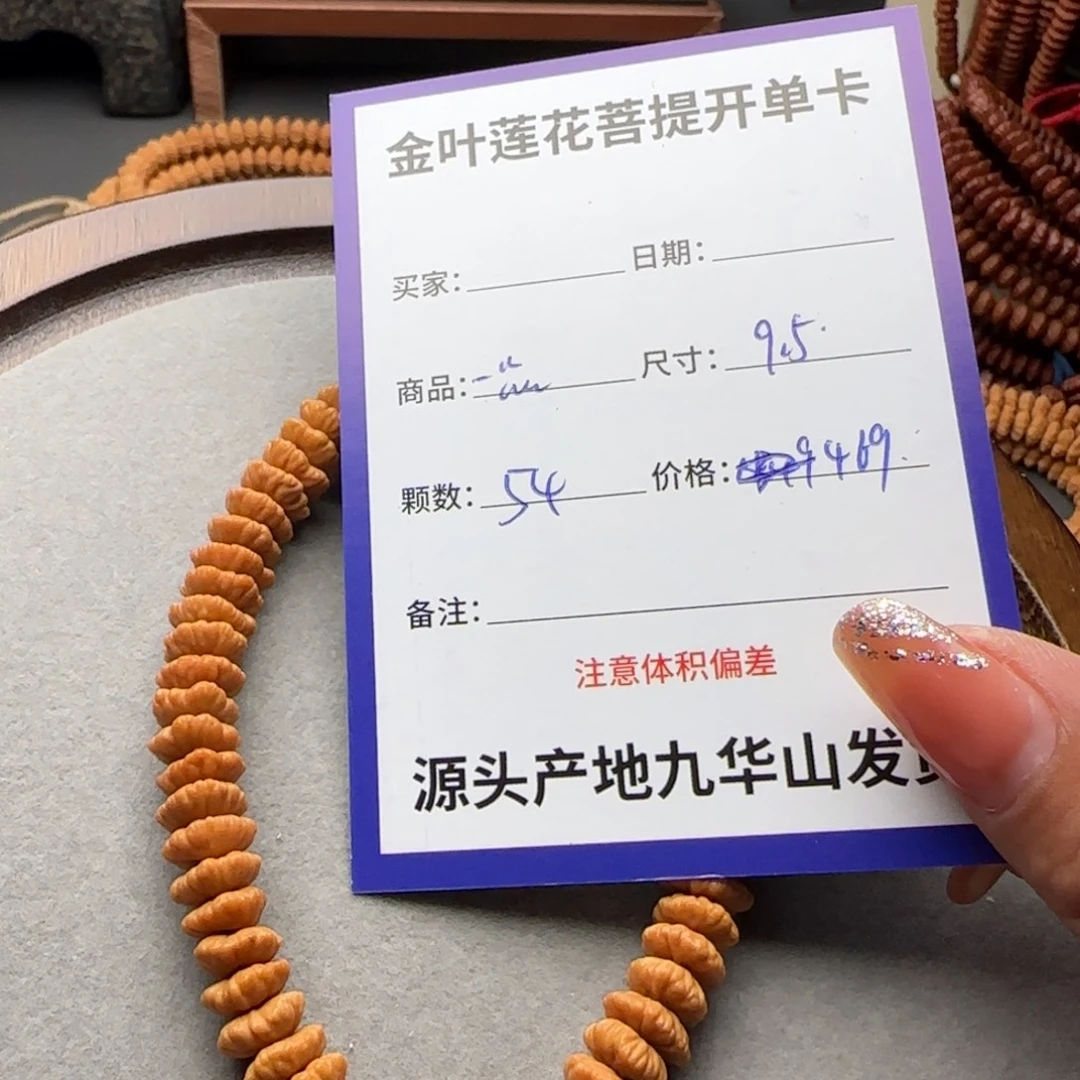 金叶莲花菩提开单卡
买家： 日期：
商品： 尺寸：9.5
颗数：54 价格：9469
备注：
注意体积偏差
源头产地九华山发